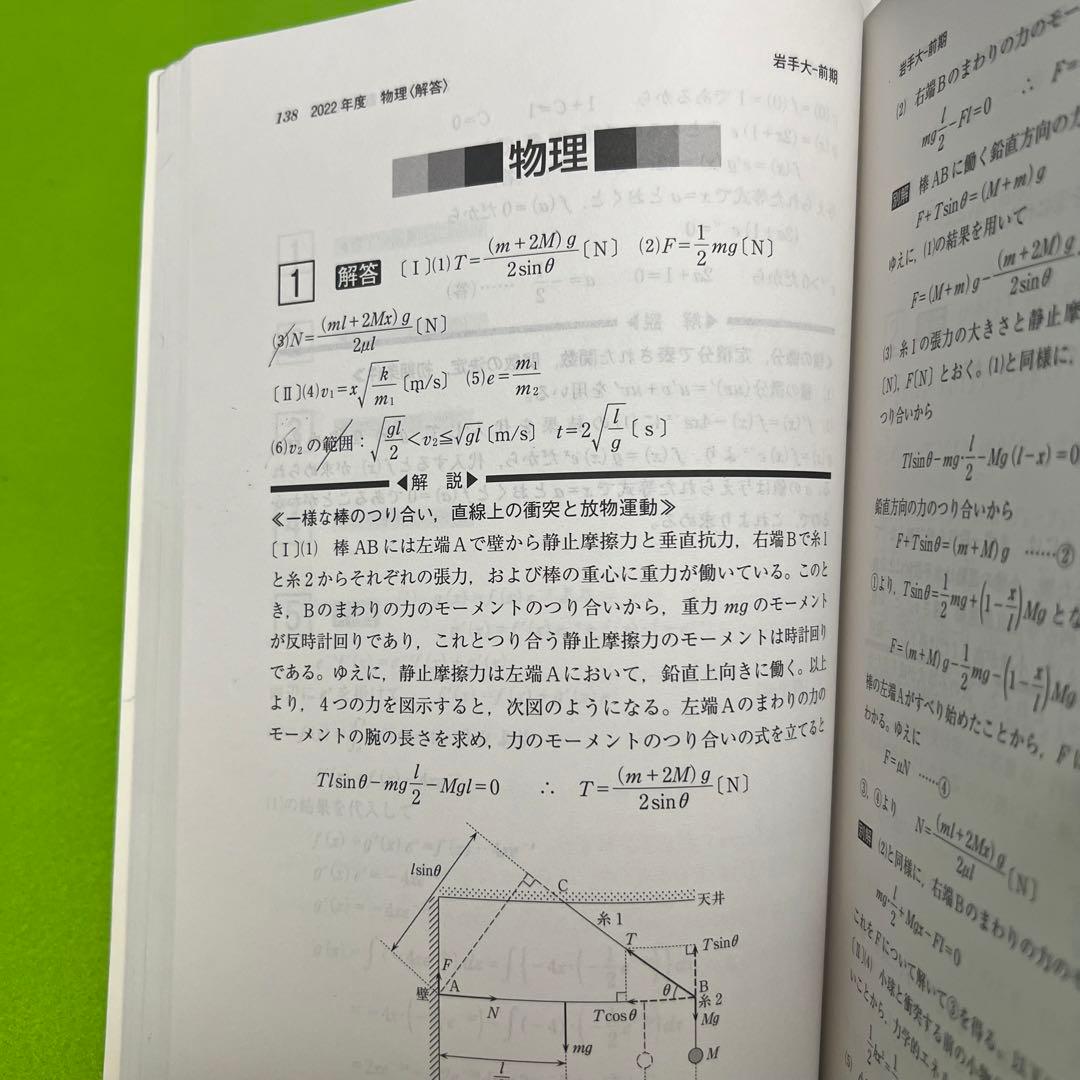 138 2022年度 物理〈解答〉
岩手大-前期
物理
1 解答 〔Ⅰ〕(1) T=(m+2M)g/2sinθ〔N〕 (2) F=1/2 mg〔N〕
(3) N=(ml+2Mx)g/2μl〔N〕
〔Ⅱ〕(4) v₁=x√(k/m₁)〔m/s〕 (5) e=m₁/m₂
(6) v₂の範囲：√(gl/2)<v₂≦√gl〔m/s〕 t=2√(l/g)〔s〕
◀解 説▶
≪一様な棒のつり合い，直線上の衝突と放物運動≫
〔Ⅰ〕(1) 棒ABには左端Aで壁から静止摩擦力と垂直抗力，右端Bで糸1
と糸2からそれぞれの張力，および棒の重心に重力が働いている。このと
き，Bのまわりの力のモーメントのつり合いから，重力mgのモーメント
が反時計回りであり，これとつり合う静止摩擦力のモーメントは時計回り
である。ゆえに，静止摩擦力は左端Aにおいて，鉛直上向きに働く。以上
より，4つの力を図示すると，次図のようになる。左端Aのまわりの力の
モーメントの腕の長さを求め，力のモーメントのつり合いの式を立てると
Tlsinθ−mg l/2−Mgl=0 ∴ T=(m+2M)g/2sinθ〔N〕
lsinθ
C
天井
糸1
T
Tsinθ
F
A
壁
θ
B
糸2
N
Tcosθ
Mg
mg
M
l
岩手大-前期
(2) 右端Bのまわりの力のモー
mg l/2−Fl=0 ∴ F=
別解 棒ABに働く鉛直方向の力
F+Tsinθ=(M+m)g
ゆえに，(1)の結果を用いて
F=(M+m)g−(m+2M)g/2sinθ
(3) 糸1の張力の大きさと静止摩
〔N〕，F〔N〕とおく。(1)と同様に，
つり合いから
Tlsinθ−mg・l/2−Mg(l−x)=0
鉛直方向の力のつり合いから
F+Tsinθ=(m+M)g ……②
①より，Tsinθ=1/2 mg+(1−x/l)Mg とな
F=(m+M)g−1/2 mg−(1−x/l)Mg
棒の左端Aがすべり始めたことから，Fに
わかる。ゆえに
F=μN ……④
③，④より N=(ml+2Mx)g/2μl〔N〕
別解 (2)と同様に，右端Bのまわりの力の
mg・l/2+Mgx−Fl=0
これをFについて解いて③を得る。以下
〔Ⅱ〕(4) 小球と衝突する前の小物
いことから，力学的エネ
1/2 kx²=1/
(5)